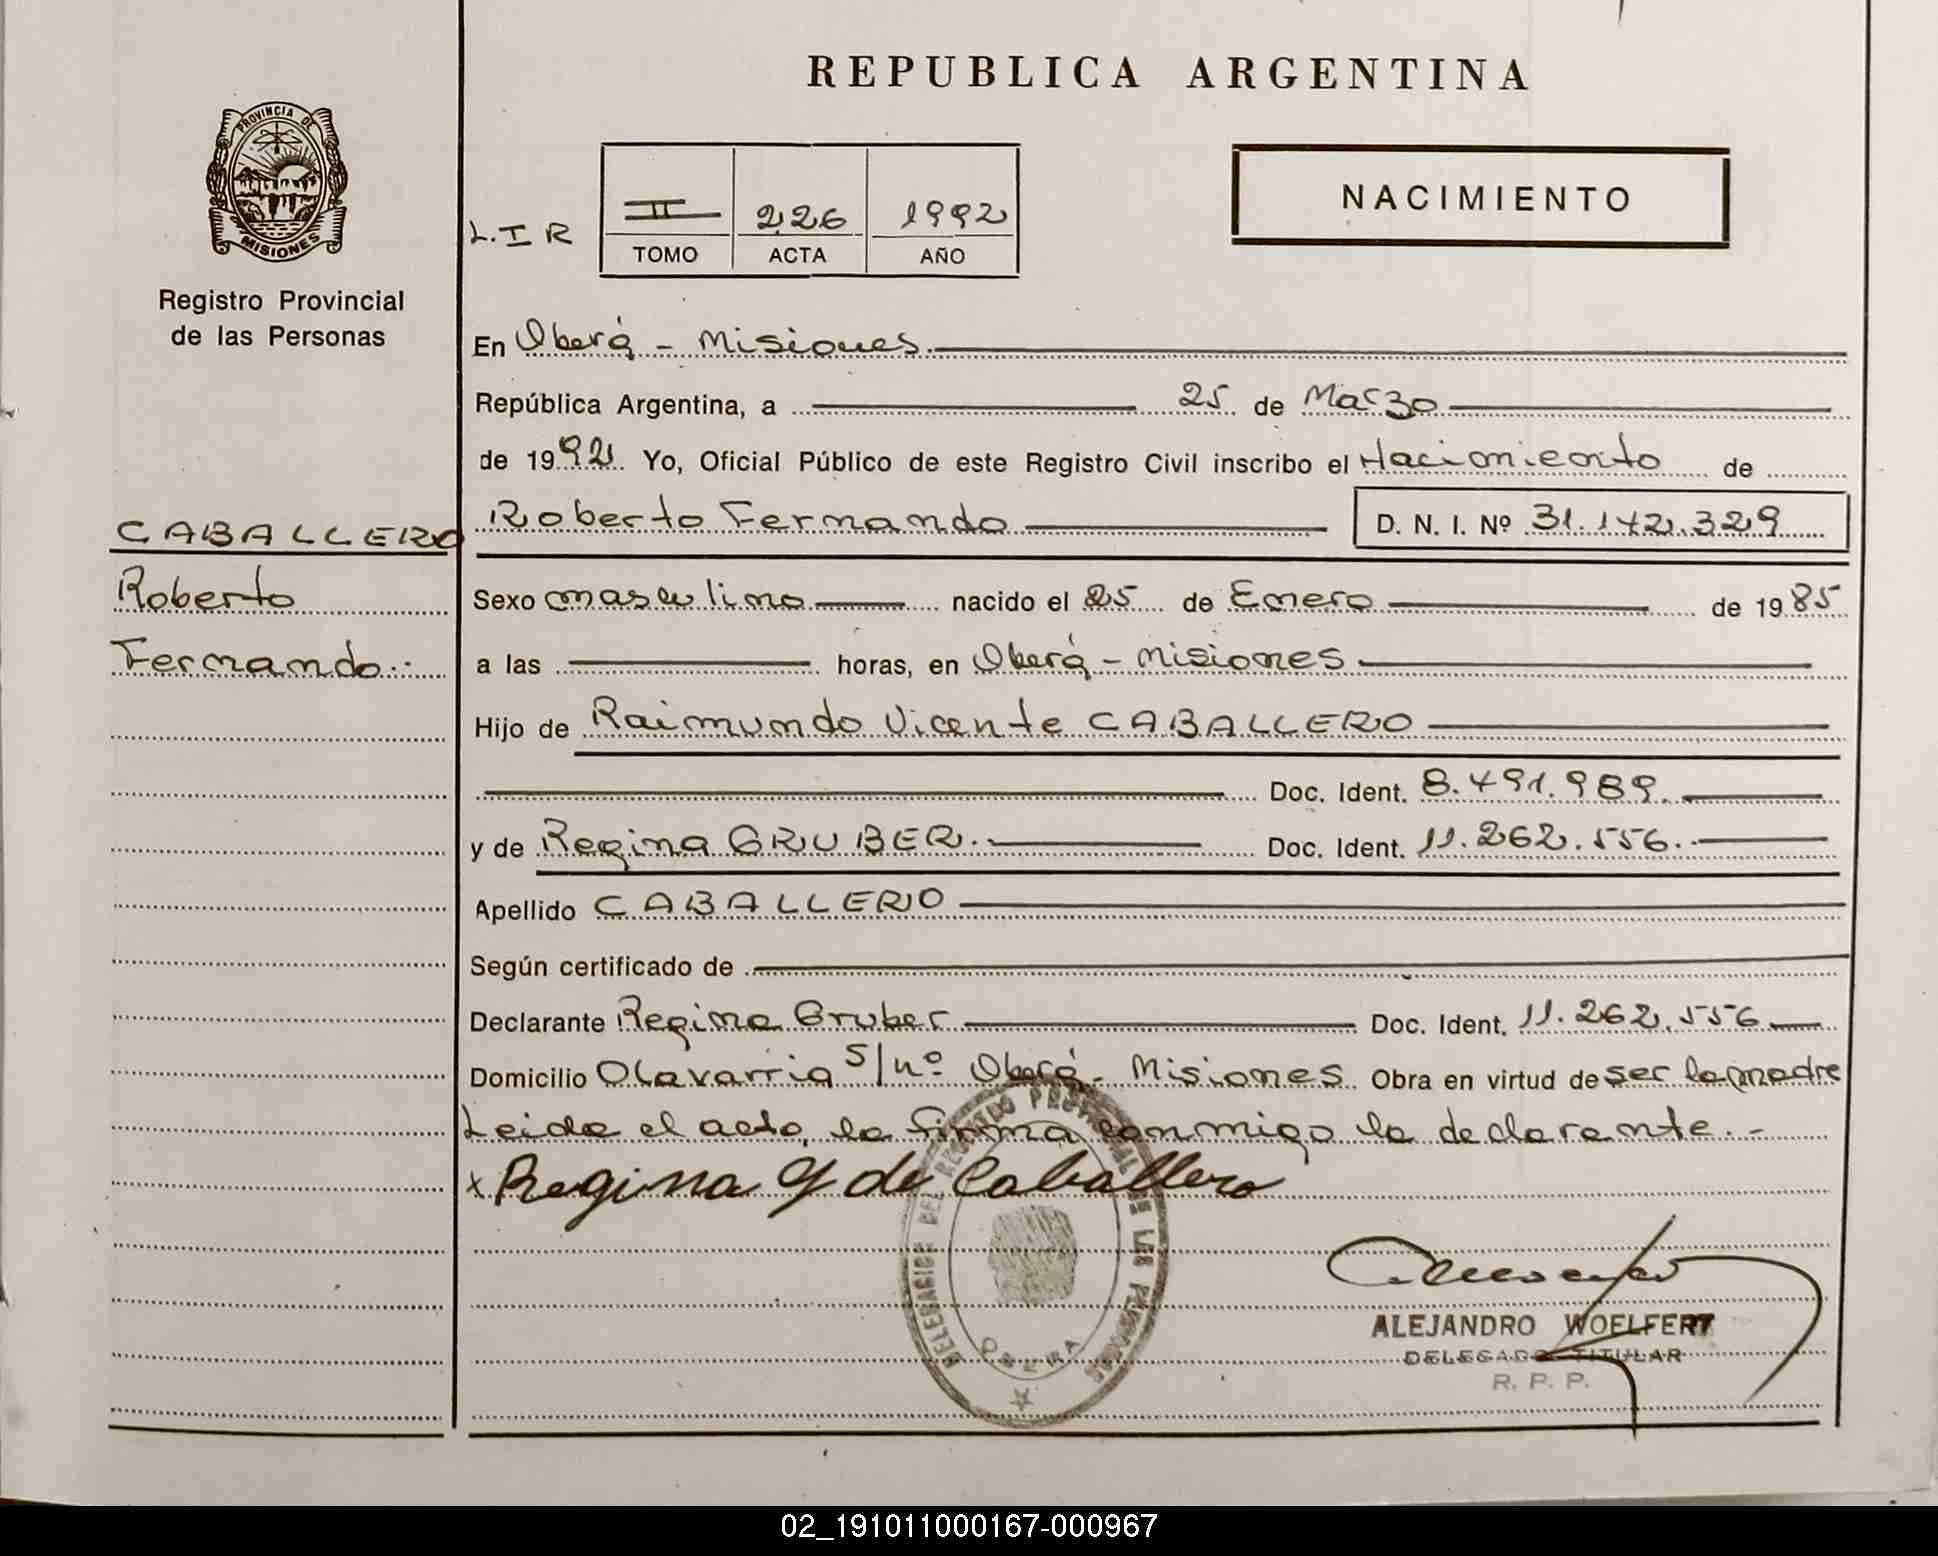 REPUBLICA ARGENTINA
PROVINCIA DE
MISIONES
Registro Provincial
de las Personas
L.I R
II 226 1992
TOMO ACTA AÑO
NACIMIENTO
En Oberá - Misiones.
República Argentina, a 25 de Marzo
de 1992 Yo, Oficial Público de este Registro Civil inscribo el Nacimiento de
CABALLERO
Roberto
Fernando
Roberto Fernando D. N. I. Nº 31.142.329
Sexo masculino nacido el 25 de Enero de 1985
a las horas, en Oberá - Misiones
Hijo de Raimundo Vicente CABALLERO
Doc. Ident. 8.491.989.
y de Regina GRUBER. Doc. Ident. 11.262.556.
Apellido CABALLERO
Según certificado de
Declarante Regina Gruber Doc. Ident. 11.262.556
Domicilio Olavarria S/nº Oberá - Misiones Obra en virtud de ser la madre
Leida el acta, la firma conmigo la declarante. -
x Regina G de Caballero
DELEGACION DEL REGISTRO PROVINCIAL DE LAS PERSONAS
OBERA
ALEJANDRO WOELFERT
DELEGADO TITULAR
R. P. P.
02_191011000167-000967